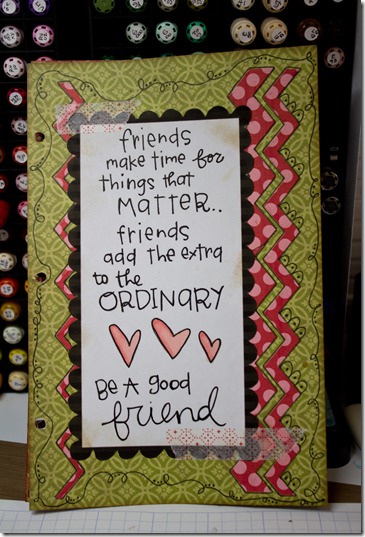 friends
make time for
things that
MATTER..
friends
add the extra
to the
ORDINARY
Be A good
friend